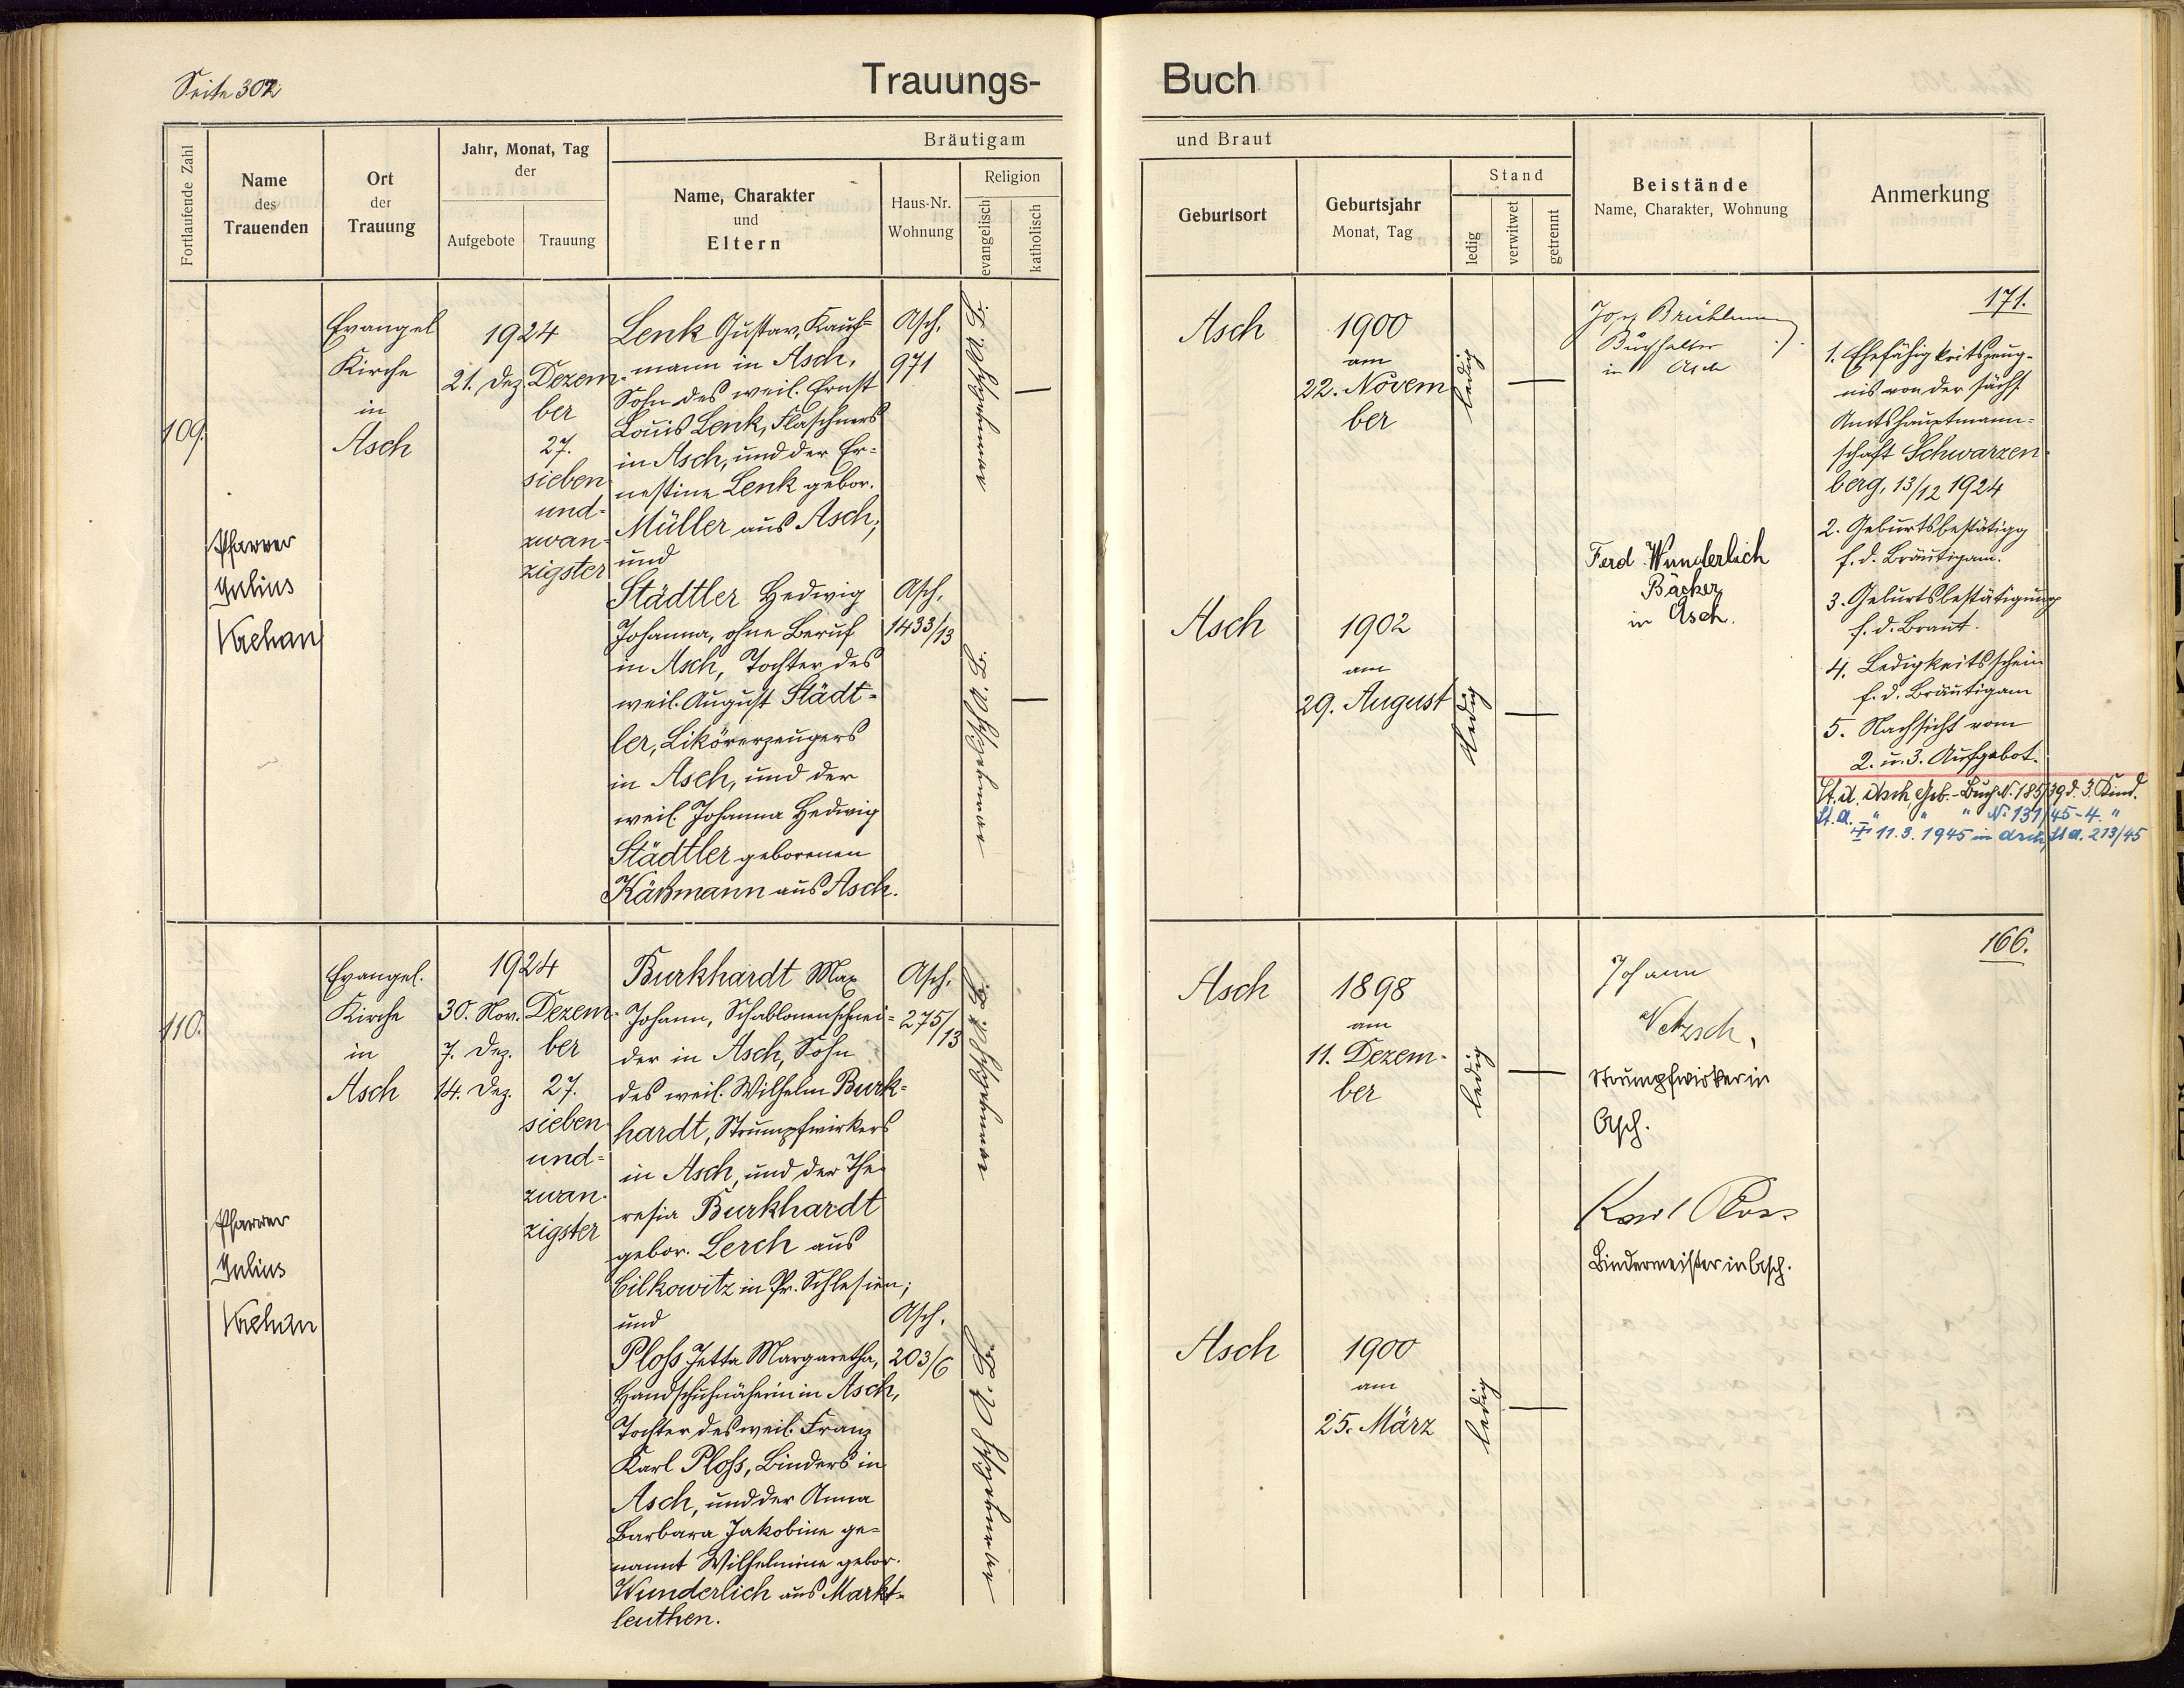 Seite 302
Trauungs-
Buch
Fortlaufende Zahl
Name
des
Trauenden
Ort
der
Trauung
Jahr, Monat, Tag
der
Aufgebote
Trauung
Bräutigam
Name, Charakter
und
Eltern
Haus-Nr.
Wohnung
Religion
evangelisch
katholisch
und Braut
Geburtsort
Geburtsjahr
Monat, Tag
Stand
ledig
verwitwet
getrennt
Beistände
Name, Charakter, Wohnung
Anmerkung
109.
Pfarrer
Julius
Evangel
Kirche
in
Asch
1924
21. Dez.
Dezem-
ber
27.
sieben
und-
zwan-
zigster
Lenk Gustav, Kauf-
mann in Asch,
Sohn des weil. Ernst
Louis Lenk, Flaschners
in Asch, und der Er-
nestine Lenk gebor.
Müller aus Asch;
und
Städtler Hedwig
Johanna, ohne Beruf
in Asch, Tochter des
weil. August Städt-
ler, Likörerzeugers
in Asch, und der
weil. Johanna Hedwig
Städtler geborenen
Käßmann aus Asch.
Asch,
971
Asch,
1433/13
Asch
1900
am
22. Novem
ber
ledig
Asch
1902
am
29. August
ledig
Buchhalter
in Asch
Ferd Wunderlich
Bäcker
in Asch.
171.
1. Ehefähigkeitszeug-
nis von der sächs.
Amtshauptmann-
schaft Schwarzen-
berg, 13/12 1924
2. Geburtsbestätigg
f. d. Bräutigam.
3. Geburtsbestätigung
f. d. Braut.
4. Ledigkeitsschein
f. d. Bräutigam
5. Nachsicht vom
2. u. 3. Aufgebot.
St. A. Asch Geb.-Buch N. 185/39 d. 3. Kind.
St. A. " " " N. 131/45 - 4. "
11. 3. 1945 in Asch, St A. 213/45
110.
Pfarrer
Julius
Evangel.
Kirche
in
Asch
1924
30. Nov.
7. Dez.
14. Dez.
Dezem-
ber
27.
sieben
und-
zwan-
zigster
Burkhardt Max
Johann, Schablonenschnei-
der in Asch, Sohn
des weil. Wilhelm Burk-
hardt, Strumpfwirkers
in Asch, und der The-
resia Burkhardt
gebor. Lerch aus
in Pr. Schlesien;
und
Ploß Jetta Margaretha,
Handschuhnäherin in Asch,
Tochter des weil. Franz
Karl Ploß, Binders in
Asch, und der Anna
Barbara Jakobine ge-
nannt Wilhelmine gebor.
Wunderlich aus Markt-
leuthen.
Asch,
275/
13
Asch,
203/6
Asch
1898
am
11. Dezem-
ber
ledig
Asch
1900
am
25. März
ledig
Johann
Netzsch,
Strumpfwirker in
Asch.
Karl Ploss
Bindermeister in Asch.
166.